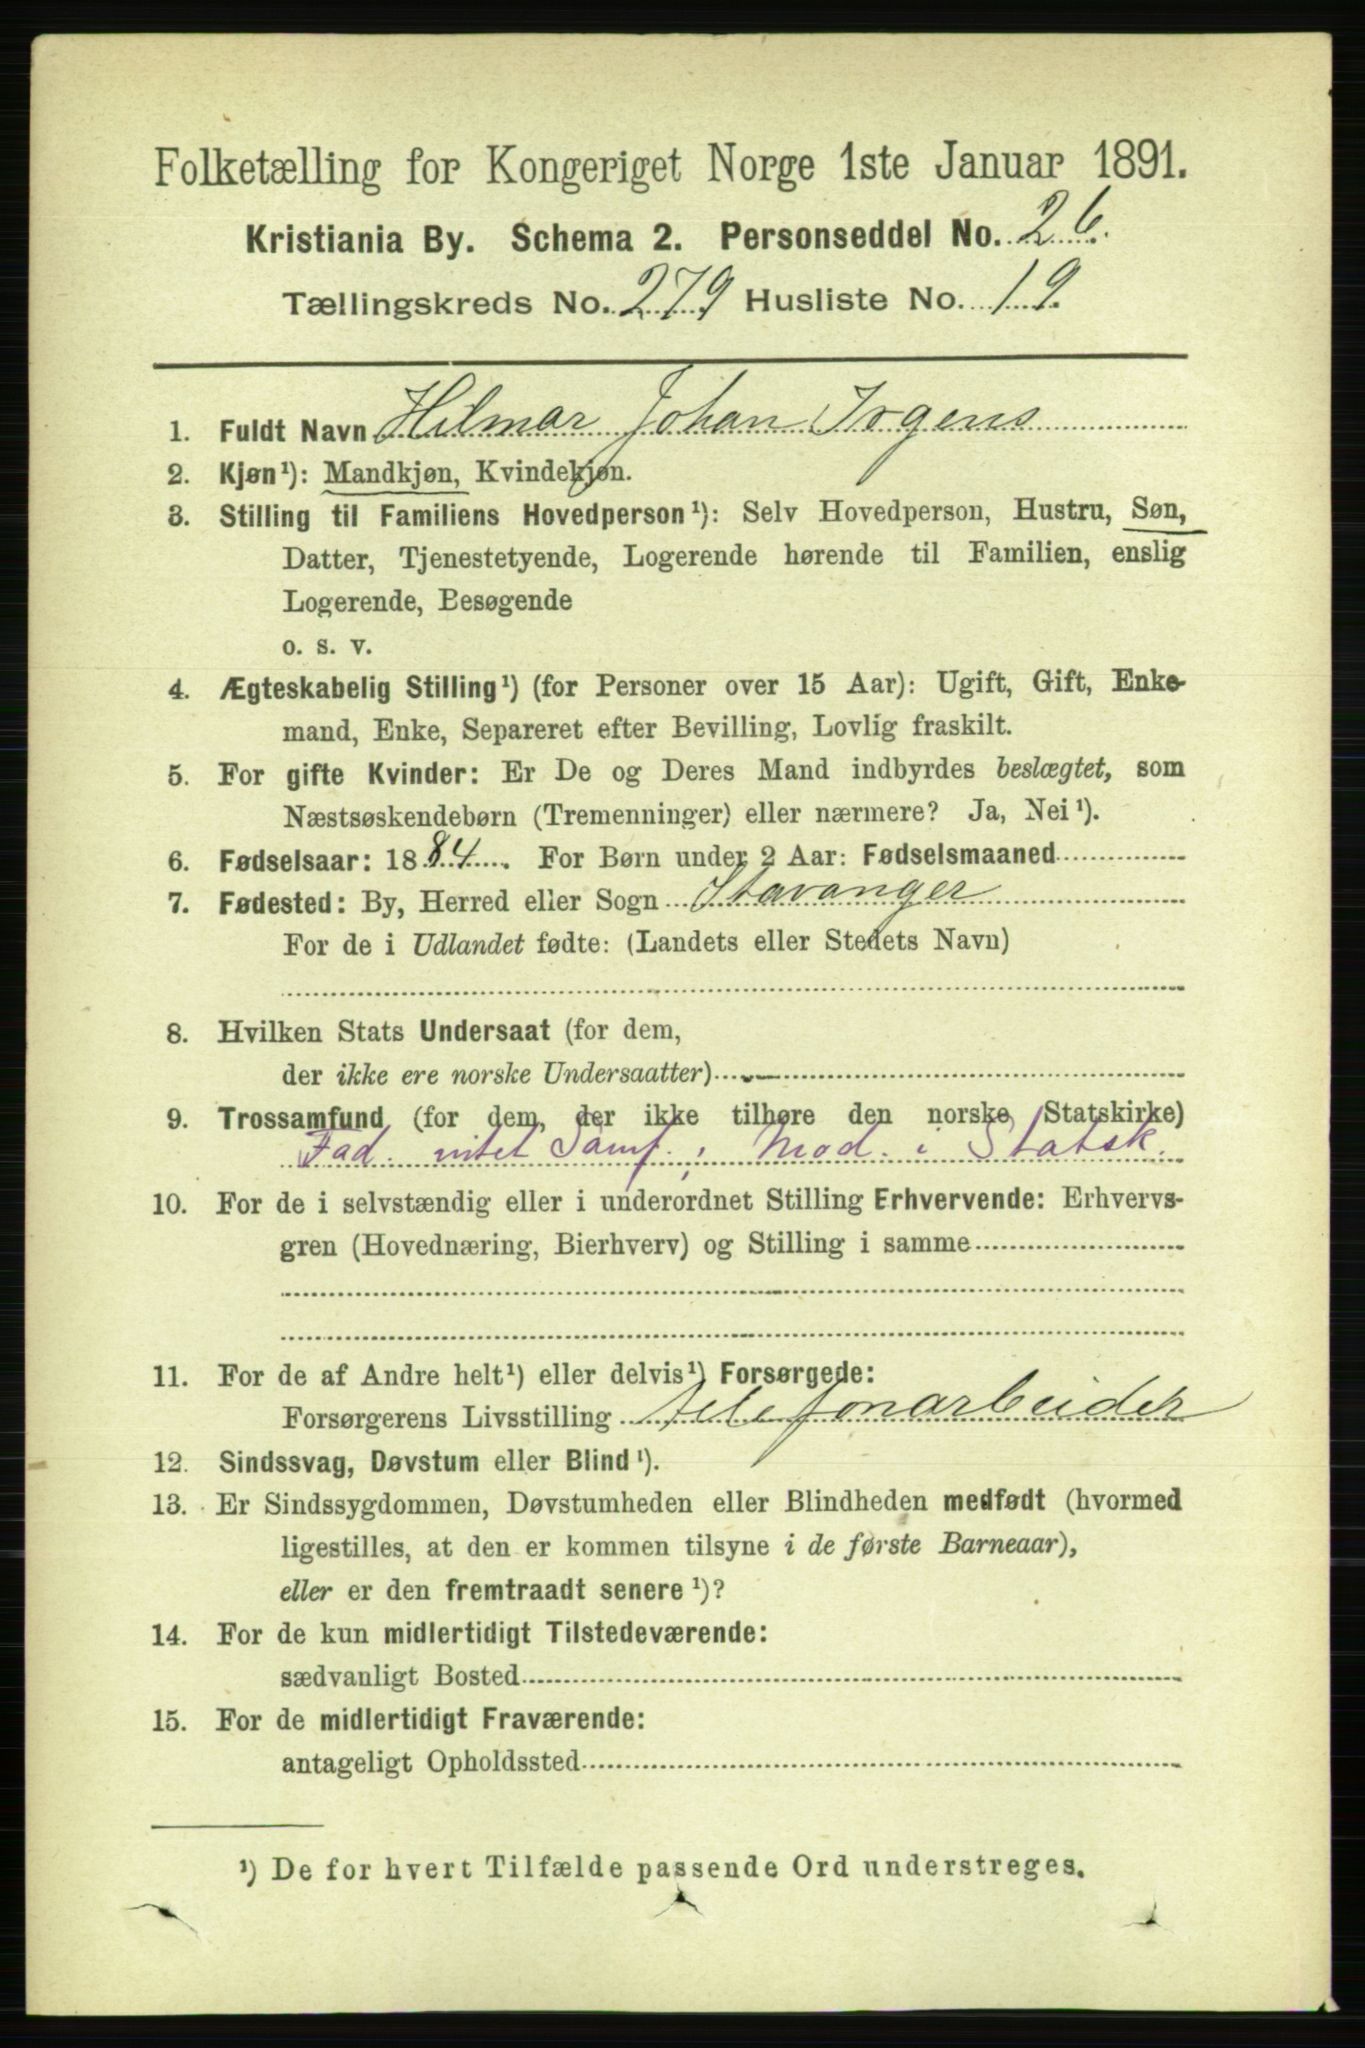 Folketælling for Kongeriget Norge 1ste Januar 1891.
Kristiania By. Schema 2. Personseddel No. 26.
Tællingskreds No. 279 Husliste No. 19.
1. Fuldt Navn Hilmar Johan Irgens
2. Kjøn¹): Mandkjøn, Kvindekjøn.
3. Stilling til Familiens Hovedperson¹): Selv Hovedperson, Hustru, Søn,
Datter, Tjenestetyende, Logerende hørende til Familien, enslig
Logerende, Besøgende
o. s. v.
4. Ægteskabelig Stilling¹) (for Personer over 15 Aar): Ugift, Gift, Enke-
mand, Enke, Separeret efter Bevilling, Lovlig fraskilt.
5. For gifte Kvinder: Er De og Deres Mand indbyrdes beslægtet, som
Næstsøskendebørn (Tremenninger) eller nærmere? Ja, Nei¹).
6. Fødselsaar: 1884. For Børn under 2 Aar: Fødselsmaaned
7. Fødested: By, Herred eller Sogn Stavanger
For de i Udlandet fødte: (Landets eller Stedets Navn)
8. Hvilken Stats Undersaat (for dem,
der ikke ere norske Undersaatter)
9. Trossamfund (for dem, der ikke tilhøre den norske Statskirke)
Fad. intet Samf.; Mod. i Statsk.
10. For de i selvstændig eller i underordnet Stilling Erhvervende: Erhvervs-
gren (Hovednæring, Bierhverv) og Stilling i samme
11. For de af Andre helt¹) eller delvis¹) Forsørgede:
Forsørgerens Livsstilling telefonarbeider
12. Sindssvag, Døvstum eller Blind¹).
13. Er Sindssygdommen, Døvstumheden eller Blindheden medfødt (hvormed
ligestilles, at den er kommen tilsyne i de første Barneaar),
eller er den fremtraadt senere¹)?
14. For de kun midlertidigt Tilstedeværende:
sædvanligt Bosted
15. For de midlertidigt Fraværende:
antageligt Opholdssted
¹) De for hvert Tilfælde passende Ord understreges.